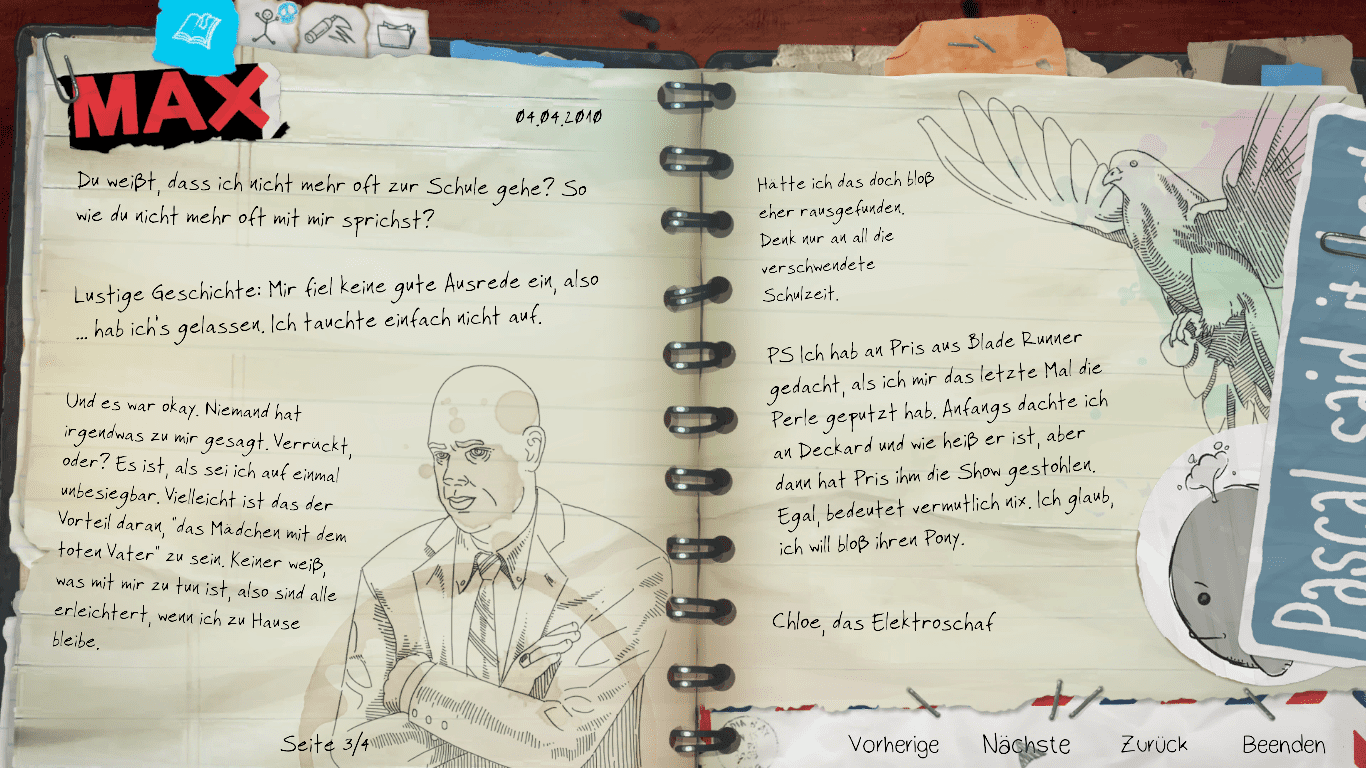 MAX
04.04.2010
Du weißt, dass ich nicht mehr oft zur Schule gehe? So
wie du nicht mehr oft mit mir sprichst?
Lustige Geschichte: Mir fiel keine gute Ausrede ein, also
... hab ich's gelassen. Ich tauchte einfach nicht auf.
Und es war okay. Niemand hat
irgendwas zu mir gesagt. Verrückt,
oder? Es ist, als sei ich auf einmal
unbesiegbar. Vielleicht ist das der
Vorteil daran, "das Mädchen mit dem
toten Vater" zu sein. Keiner weiß,
was mit mir zu tun ist, also sind alle
erleichtert, wenn ich zu Hause
bleibe.
Seite 3/4
Hätte ich das doch bloß
eher rausgefunden.
Denk nur an all die
verschwendete
Schulzeit.
PS Ich hab an Pris aus Blade Runner
gedacht, als ich mir das letzte Mal die
Perle geputzt hab. Anfangs dachte ich
an Deckard und wie heiß er ist, aber
dann hat Pris ihm die Show gestohlen.
Egal, bedeutet vermutlich nix. Ich glaub,
ich will bloß ihren Pony.
Chloe, das Elektroschaf
Pascal said it
Vorherige Nächste Zurück Beenden